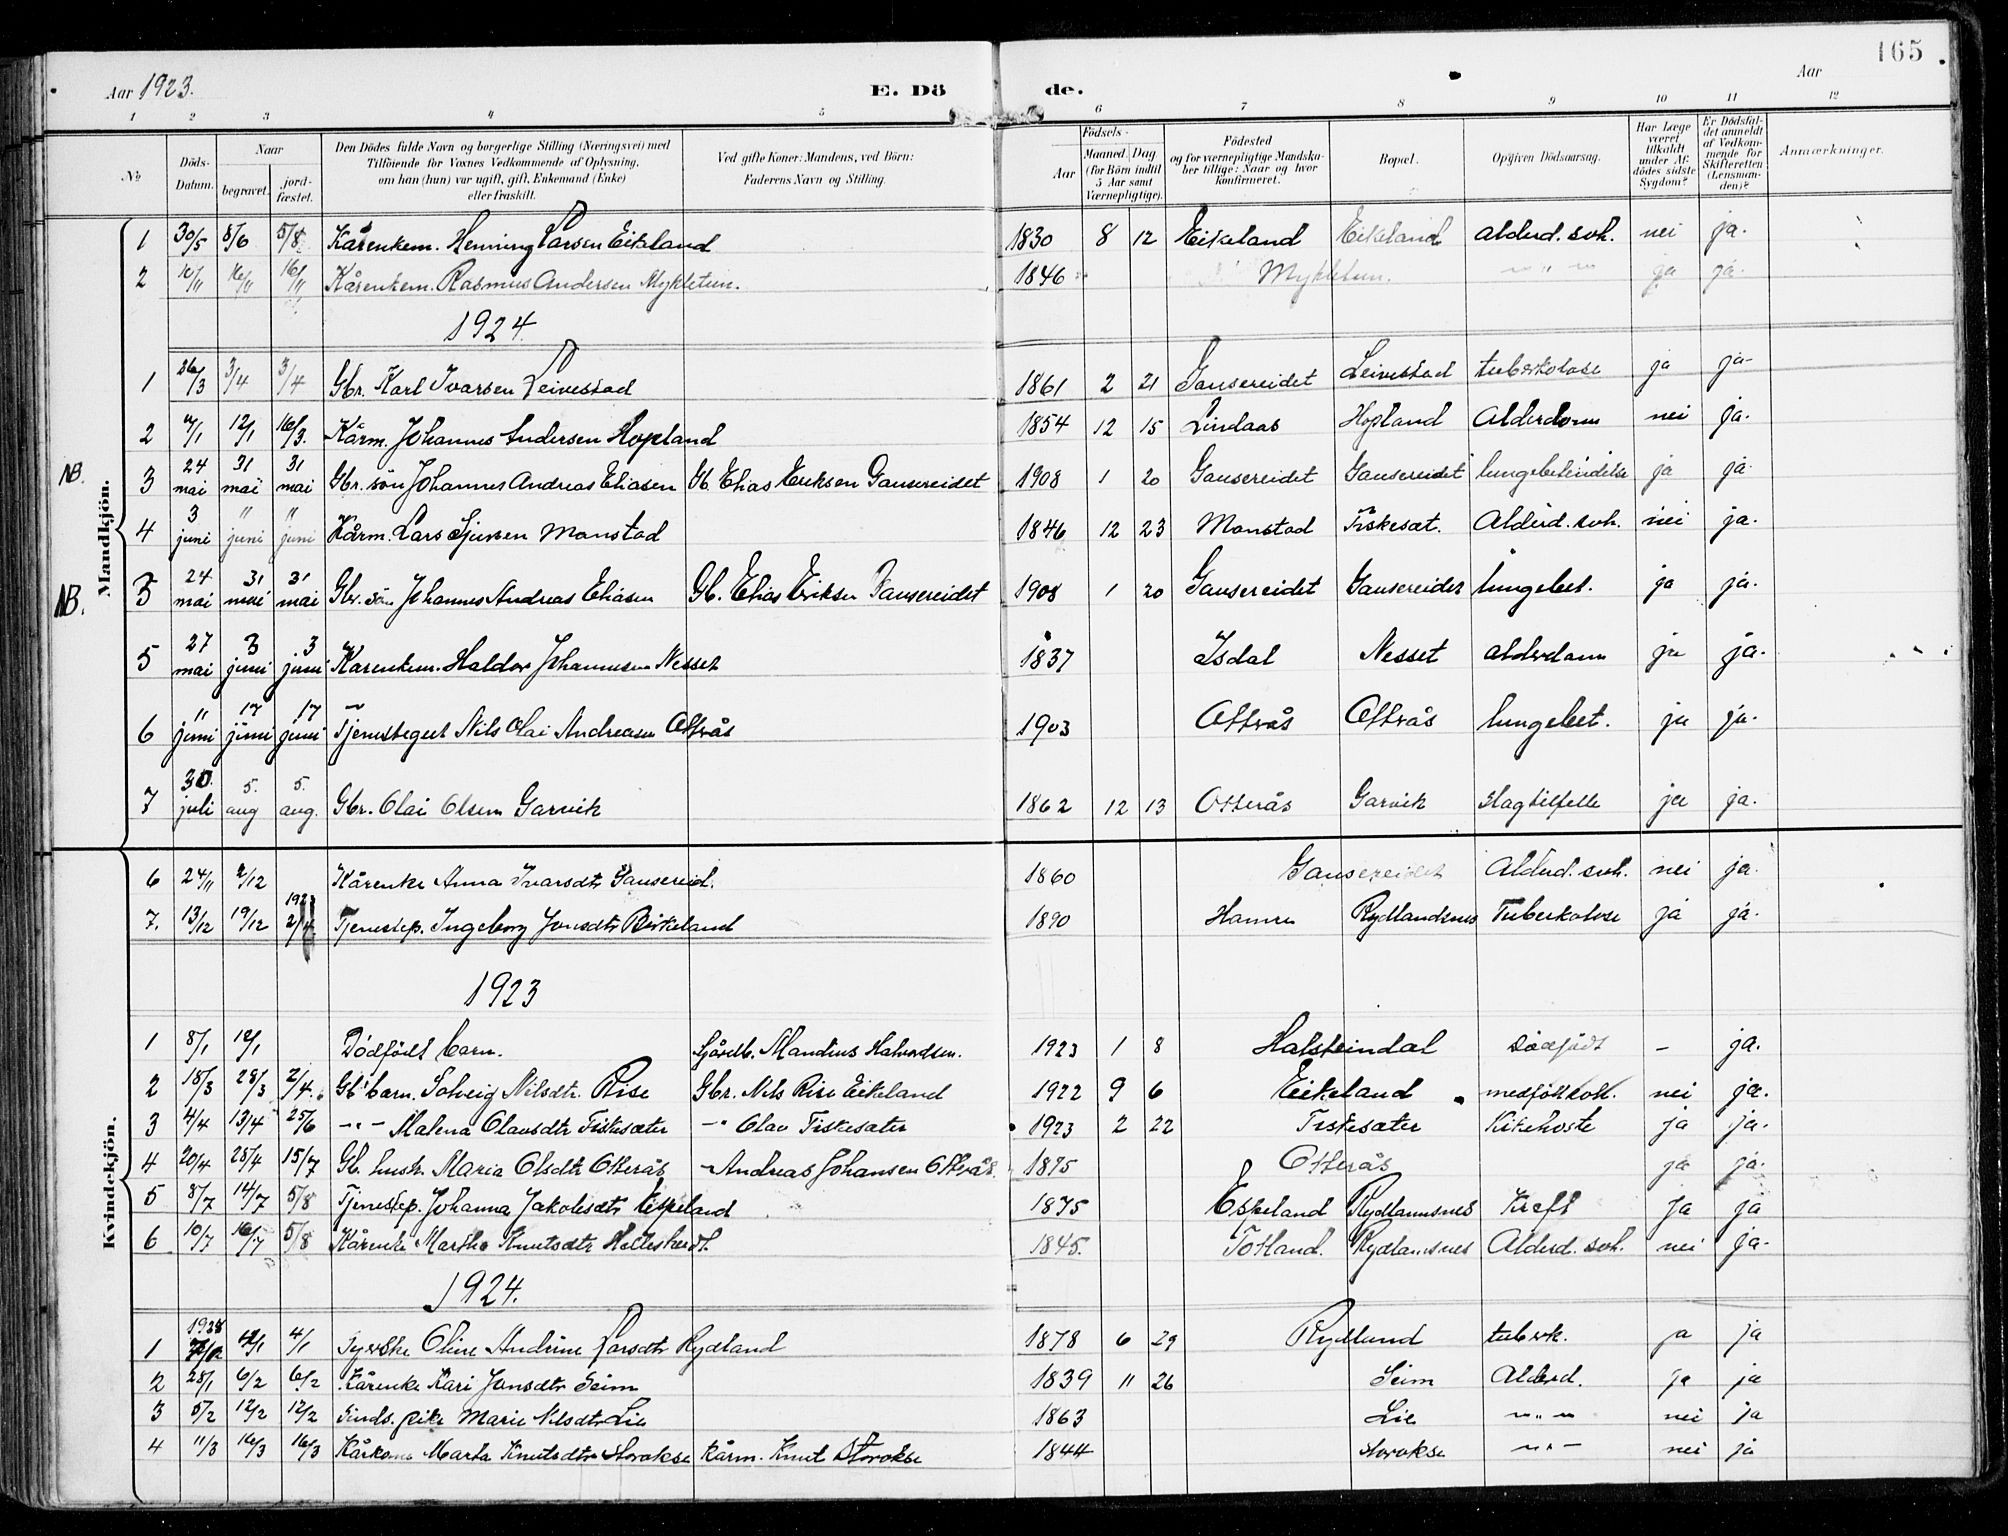 165
Aar 1923. E. Dö de. Aar
1 2 3 4 5 6 7 8 9 10 11 12
№ Döds-Datum. Naar begravet. jord-fæstet. Den Dödes fulde Navn og borgerlige Stilling (Næringsvei) med Tilföiende for Voxnes Vedkommende af Oplysning, om han (hun) var ugift, gift, Enkemand (Enke) eller fraskilt. Ved gifte Koner: Mandens, ved Börn: Faderens Navn og Stilling. Födsels- Aar Maaned. Dag (for Börn indtil 5 Aar samt Værnepligtige). Födested og for værnepligtige Mandskaber tillige: Naar og hvor konfirmeret. Bopæl. Opgiven Dödsaarsag. Har Læge været tilkaldt under Afdödes sidste Sygdom? Er Dödsfaldet anmeldt af Vedkommende for Skifteretten (Lensmanden)? Anmærkninger.
Mandkjön.
1 30/5 8/6 5/8 Kårenkem. Henning Larsen Eikeland 1830 8 12 Eikeland Eikeland alderd.svh. nei ja.
2 10/11 16/11 16/11 Kårenkem. Rasmus Andersen Mykletun. 1846 Mykletun. " ja ja.
1924.
1 26/3 3/4 3/4 Gbr. Karl Ivarsen Leivestad 1861 2 21 Gausereidet Leivestad tuberkolose ja ja
2 4/1 12/1 16/3. Kårm. Johannes Andersen Hopland 1854 12 15 Lindaas Hopland Alderdom nei ja.
NB. 3 24 mai 31 mai 31 mai Gbr. sön Johannes Andreas Eliasen Gb. Elias Eriksen Gausereidet 1908 1 20 Gausereidet Gausereidet lungebetændelse ja ja
4 3 juni " juni " juni Kårm. Lars Sjursen Monstad 1846 12 23 Monstad Fiskesæt. Alderd.svh. nei ja.
NB. 5 24 mai 31 mai 31 mai Gbr. sön Johannes Andreas Eliasen Gb. Elias Eriksen Gausereidet 1908 1 20 Gausereidet Gausereidet lungebet. ja ja.
5 27 mai 3 juni 3 juni Kårenkem. Haldor Johannesen Nesset 1837 Isdal Nesset alderdom ja ja.
6 11 juni 17 juni 17 juni Tjenestegut Nils Olai Andreasen Otterås 1903 Otterås Otterås lungebet. ja ja.
7 30. juli 5. aug 5. aug. Gbr. Olai Olsen Garvik 1862 12 13 Otterås Garvik slagtilfelle ja ja.
Kvindekjön.
6 24/11 2/12 Kårenke Anna Ivarsdtr Gausereid. 1860 Gausereidet Alderd.svh. nei ja.
7. 13/12 19/12 1923 2/4 Tjenestep. Ingeborg Jonsdtr Birkeland 1890 Hamre Rydlandsnes Tuberkolose ja ja.
1923
1 8/1 12/1 Dödfödt barn. Sjåarb. Mandius Halvordsen. 1923 1 8 Halsteindal Dödfödt - ja.
2 18/3 28/3 2/4. Gb. barn. Solveig Nilsdtr. Rise Gbr. Nils Rise Eikeland 1922 9 6 Eikeland medfödt svh. nei ja.
3 4/4 13/4 25/6 -"- Malena Olavsdtr Fiskesæter -" Olav Fiskesæter 1923 2 22 Fiskesæter Kikehoste ja ja.
4 20/4 28/4 15/7 Gb. hustr. Maria Olsdtr Otterås - Andreas Johansen Otterås. 1875 Otterås ja ja.
5 8/7 14/7 5/8 Tjenestep. Johanna Jakobsdtr Espeland 1875 Espeland Rydlannsnes Kreft Ja ja
6 10/7 16/7 5/8 Kårenke Martha Knutsdtr 1845. Totland. Rydlannsnes Alderd.svh. nei ja.
1924.
1 1923 12/1 4/1 Syerske Oline Andrine Larsdtr Rydland 1878 6 29 Rydland tuberk. ja ja
2 28/1 6/2 6/2 Kårenke Kari Jonsdtr Seim 1839 11 26 Seim Alderd. ja ja
3 5/2 12/2 12/2 Sinds. pike Marie Nilsdtr Lie 1863 Lie " nei ja
4 11/3 16/3 16/3 Kårkone Marta Knutsdtr Storokse Kårm. Knut Storokse 1844 Storokse " nei ja